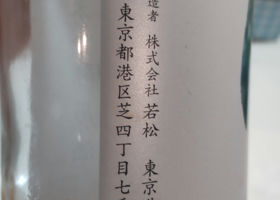 造者 株式会社若松 東京
東京都港区芝四丁目七